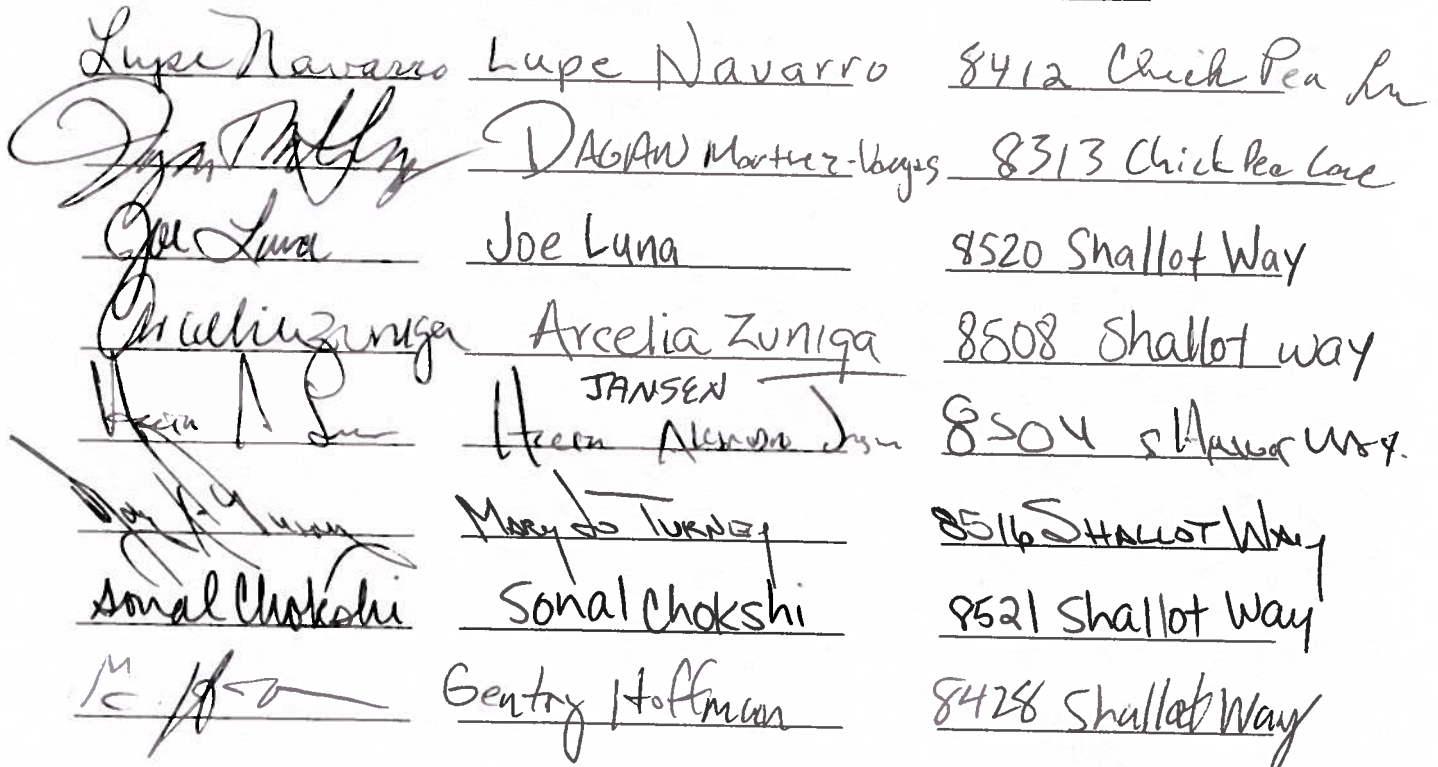 Lupe Navarro Lupe Navarro 8412 Chick Pea Ln
DAGAN Martinez-Vargas 8313 Chick Pea Lane
Joe Luna Joe Luna 8520 Shallot Way
Arcelia Zuniga Arcelia Zuniga 8508 Shallot way
JANSEN
8504 Shallot Way.
Mary Jo TURNEY 8516 SHALLOT WAY
Sonal Chokshi Sonal Chokshi 8521 Shallot Way
Gentry Hoffman 8428 Shallot Way